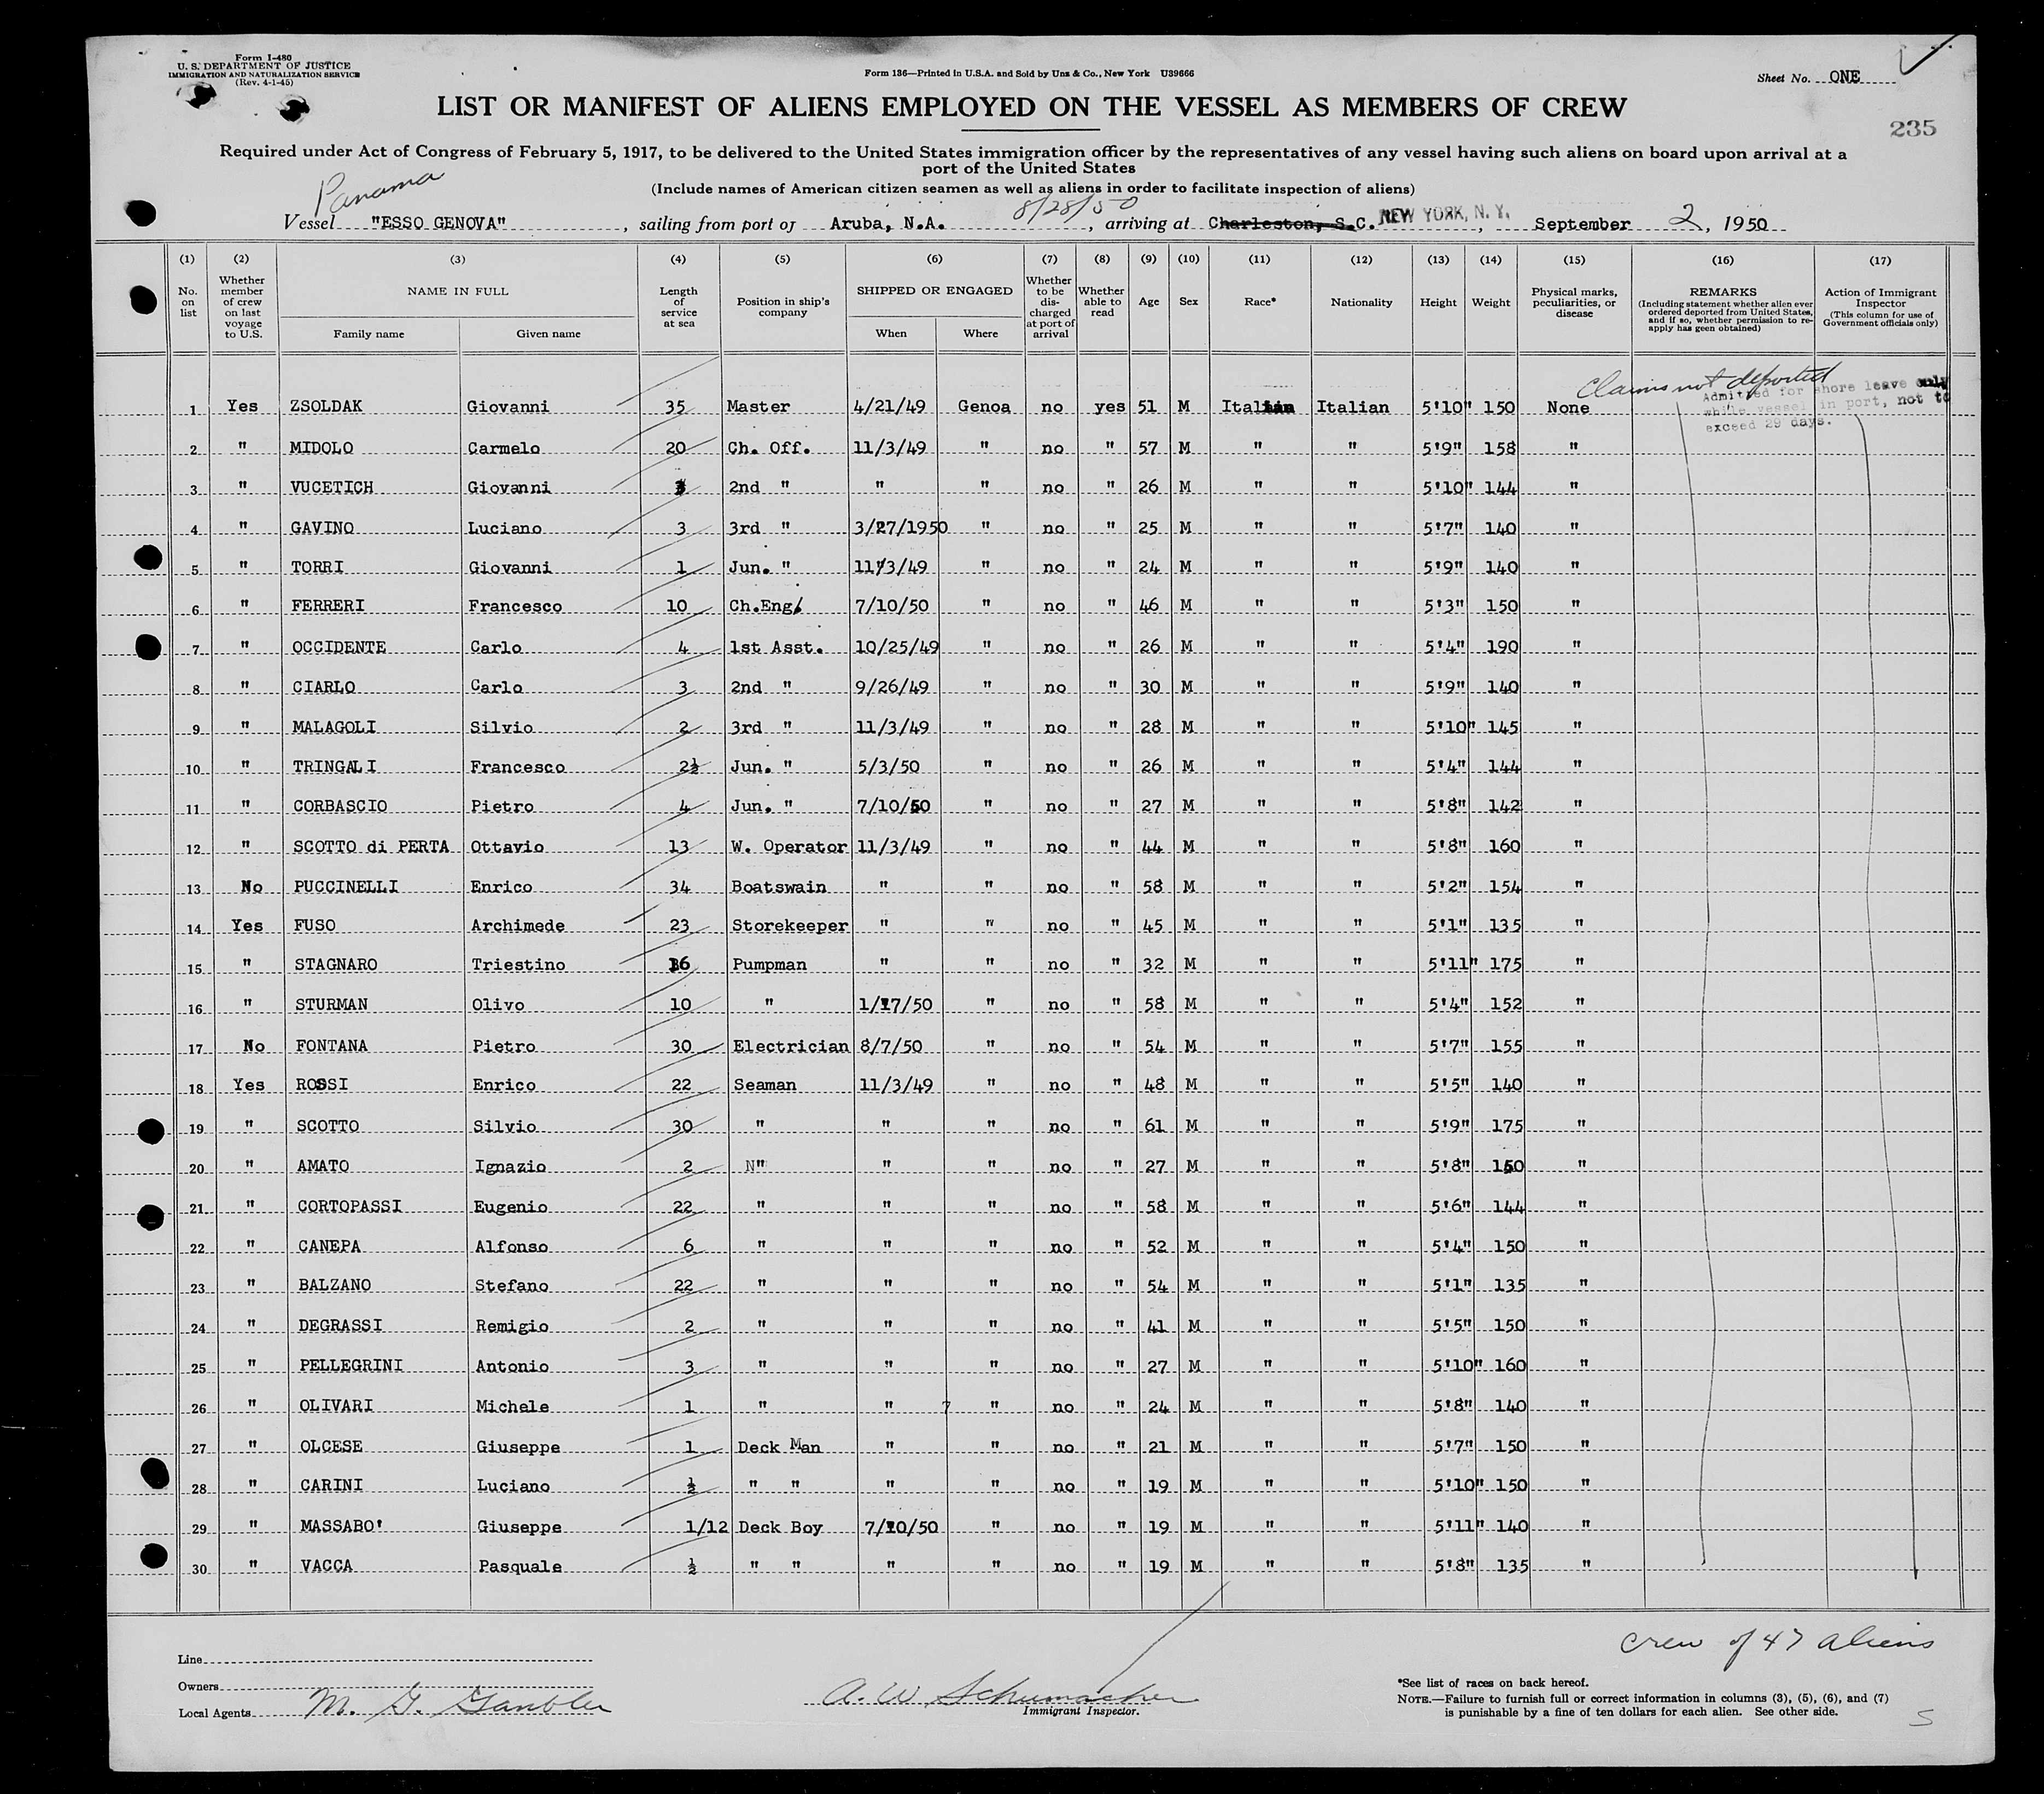 Form I-480
U. S. DEPARTMENT OF JUSTICE
IMMIGRATION AND NATURALIZATION SERVICE
(Rev. 4-1-45)
Form 136—Printed in U.S.A. and Sold by Unz & Co., New York U39666
Sheet No. ONE
LIST OR MANIFEST OF ALIENS EMPLOYED ON THE VESSEL AS MEMBERS OF CREW
235
Required under Act of Congress of February 5, 1917, to be delivered to the United States immigration officer by the representatives of any vessel having such aliens on board upon arrival at a
port of the United States
(Include names of American citizen seamen as well as aliens in order to facilitate inspection of aliens)
Panama
8/28/50
Vessel "ESSO GENOVA", sailing from port of Aruba, N.A., arriving at Charleston, S.C. NEW YORK, N. Y., September 2, 1950
(1) (2) (3) (4) (5) (6) (7) (8) (9) (10) (11) (12) (13) (14) (15) (16) (17)
No. on list
Whether member of crew on last voyage to U.S.
NAME IN FULL
Family name
Given name
Length of service at sea
Position in ship's company
SHIPPED OR ENGAGED
When
Where
Whether to be discharged at port of arrival
Whether able to read
Age
Sex
Race*
Nationality
Height
Weight
Physical marks, peculiarities, or disease
REMARKS
(Including statement whether alien ever ordered deported from United States, and if so, whether permission to re-apply has geen obtained)
Action of Immigrant Inspector
(This column for use of Government officials only)
Claims not deported
Admitted for shore leave only
while vessel in port, not to
exceed 29 days.
1 Yes ZSOLDAK Giovanni 35 Master 4/21/49 Genoa no yes 51 M Italian Italian 5'10" 150 None
2 " MIDOLO Carmelo 20 Ch. Off. 11/3/49 " no " 57 M " " 5'9" 158 "
3 " VUCETICH Giovanni 2nd " " " no " 26 M " " 5'10" 144 "
4 " GAVINO Luciano 3 3rd " 3/27/1950 " no " 25 M " " 5'7" 140 "
5 " TORRI Giovanni 1 Jun. " 11/3/49 " no " 24 M " " 5'9" 140 "
6 " FERRERI Francesco 10 Ch.Eng. 7/10/50 " no " 46 M " " 5'3" 150 "
7 " OCCIDENTE Carlo 4 1st Asst. 10/25/49 " no " 26 M " " 5'4" 190 "
8 " CIARLO Carlo 3 2nd " 9/26/49 " no " 30 M " " 5'9" 140 "
9 " MALAGOLI Silvio 2 3rd " 11/3/49 " no " 28 M " " 5'10" 145 "
10 " TRINGALI Francesco 2½ Jun. " 5/3/50 " no " 26 M " " 5'4" 144 "
11 " CORBASCIO Pietro 4 Jun. " 7/10/50 " no " 27 M " " 5'8" 142 "
12 " SCOTTO di PERTA Ottavio 13 W. Operator 11/3/49 " no " 44 M " " 5'8" 160 "
13 No PUCCINELLI Enrico 34 Boatswain " " no " 58 M " " 5'2" 154 "
14 Yes FUSO Archimede 23 Storekeeper " " no " 45 M " " 5'1" 135 "
15 " STAGNARO Triestino 16 Pumpman " " no " 32 M " " 5'11" 175 "
16 " STURMAN Olivo 10 " 1/17/50 " no " 58 M " " 5'4" 152 "
17 No FONTANA Pietro 30 Electrician 8/7/50 " no " 54 M " " 5'7" 155 "
18 Yes ROSSI Enrico 22 Seaman 11/3/49 " no " 48 M " " 5'5" 140 "
19 " SCOTTO Silvio 30 " " " no " 61 M " " 5'9" 175 "
20 " AMATO Ignazio 2 N" " " no " 27 M " " 5'8" 150 "
21 " CORTOPASSI Eugenio 22 " " " no " 58 M " " 5'6" 144 "
22 " CANEPA Alfonso 6 " " " no " 52 M " " 5'4" 150 "
23 " BALZANO Stefano 22 " " " no " 54 M " " 5'1" 135 "
24 " DEGRASSI Remigio 2 " " " no " 41 M " " 5'5" 150 "
25 " PELLEGRINI Antonio 3 " " " no " 27 M " " 5'10" 160 "
26 " OLIVARI Michele 1 " " 7 " no " 24 M " " 5'8" 140 "
27 " OLCESE Giuseppe 1 Deck Man " " no " 21 M " " 5'7" 150 "
28 " CARINI Luciano ½ " " " " no " 19 M " " 5'10" 150 "
29 " MASSABO' Giuseppe 1/12 Deck Boy 7/10/50 " no " 19 M " " 5'11" 140 "
30 " VACCA Pasquale ½ " " " " no " 19 M " " 5'8" 135 "
crew of 47 aliens
Line
Owners
Local Agents M. G. Gambler
A. W. Schumacher
Immigrant Inspector.
*See list of races on back hereof.
NOTE.—Failure to furnish full or correct information in columns (3), (5), (6), and (7)
is punishable by a fine of ten dollars for each alien. See other side.
5